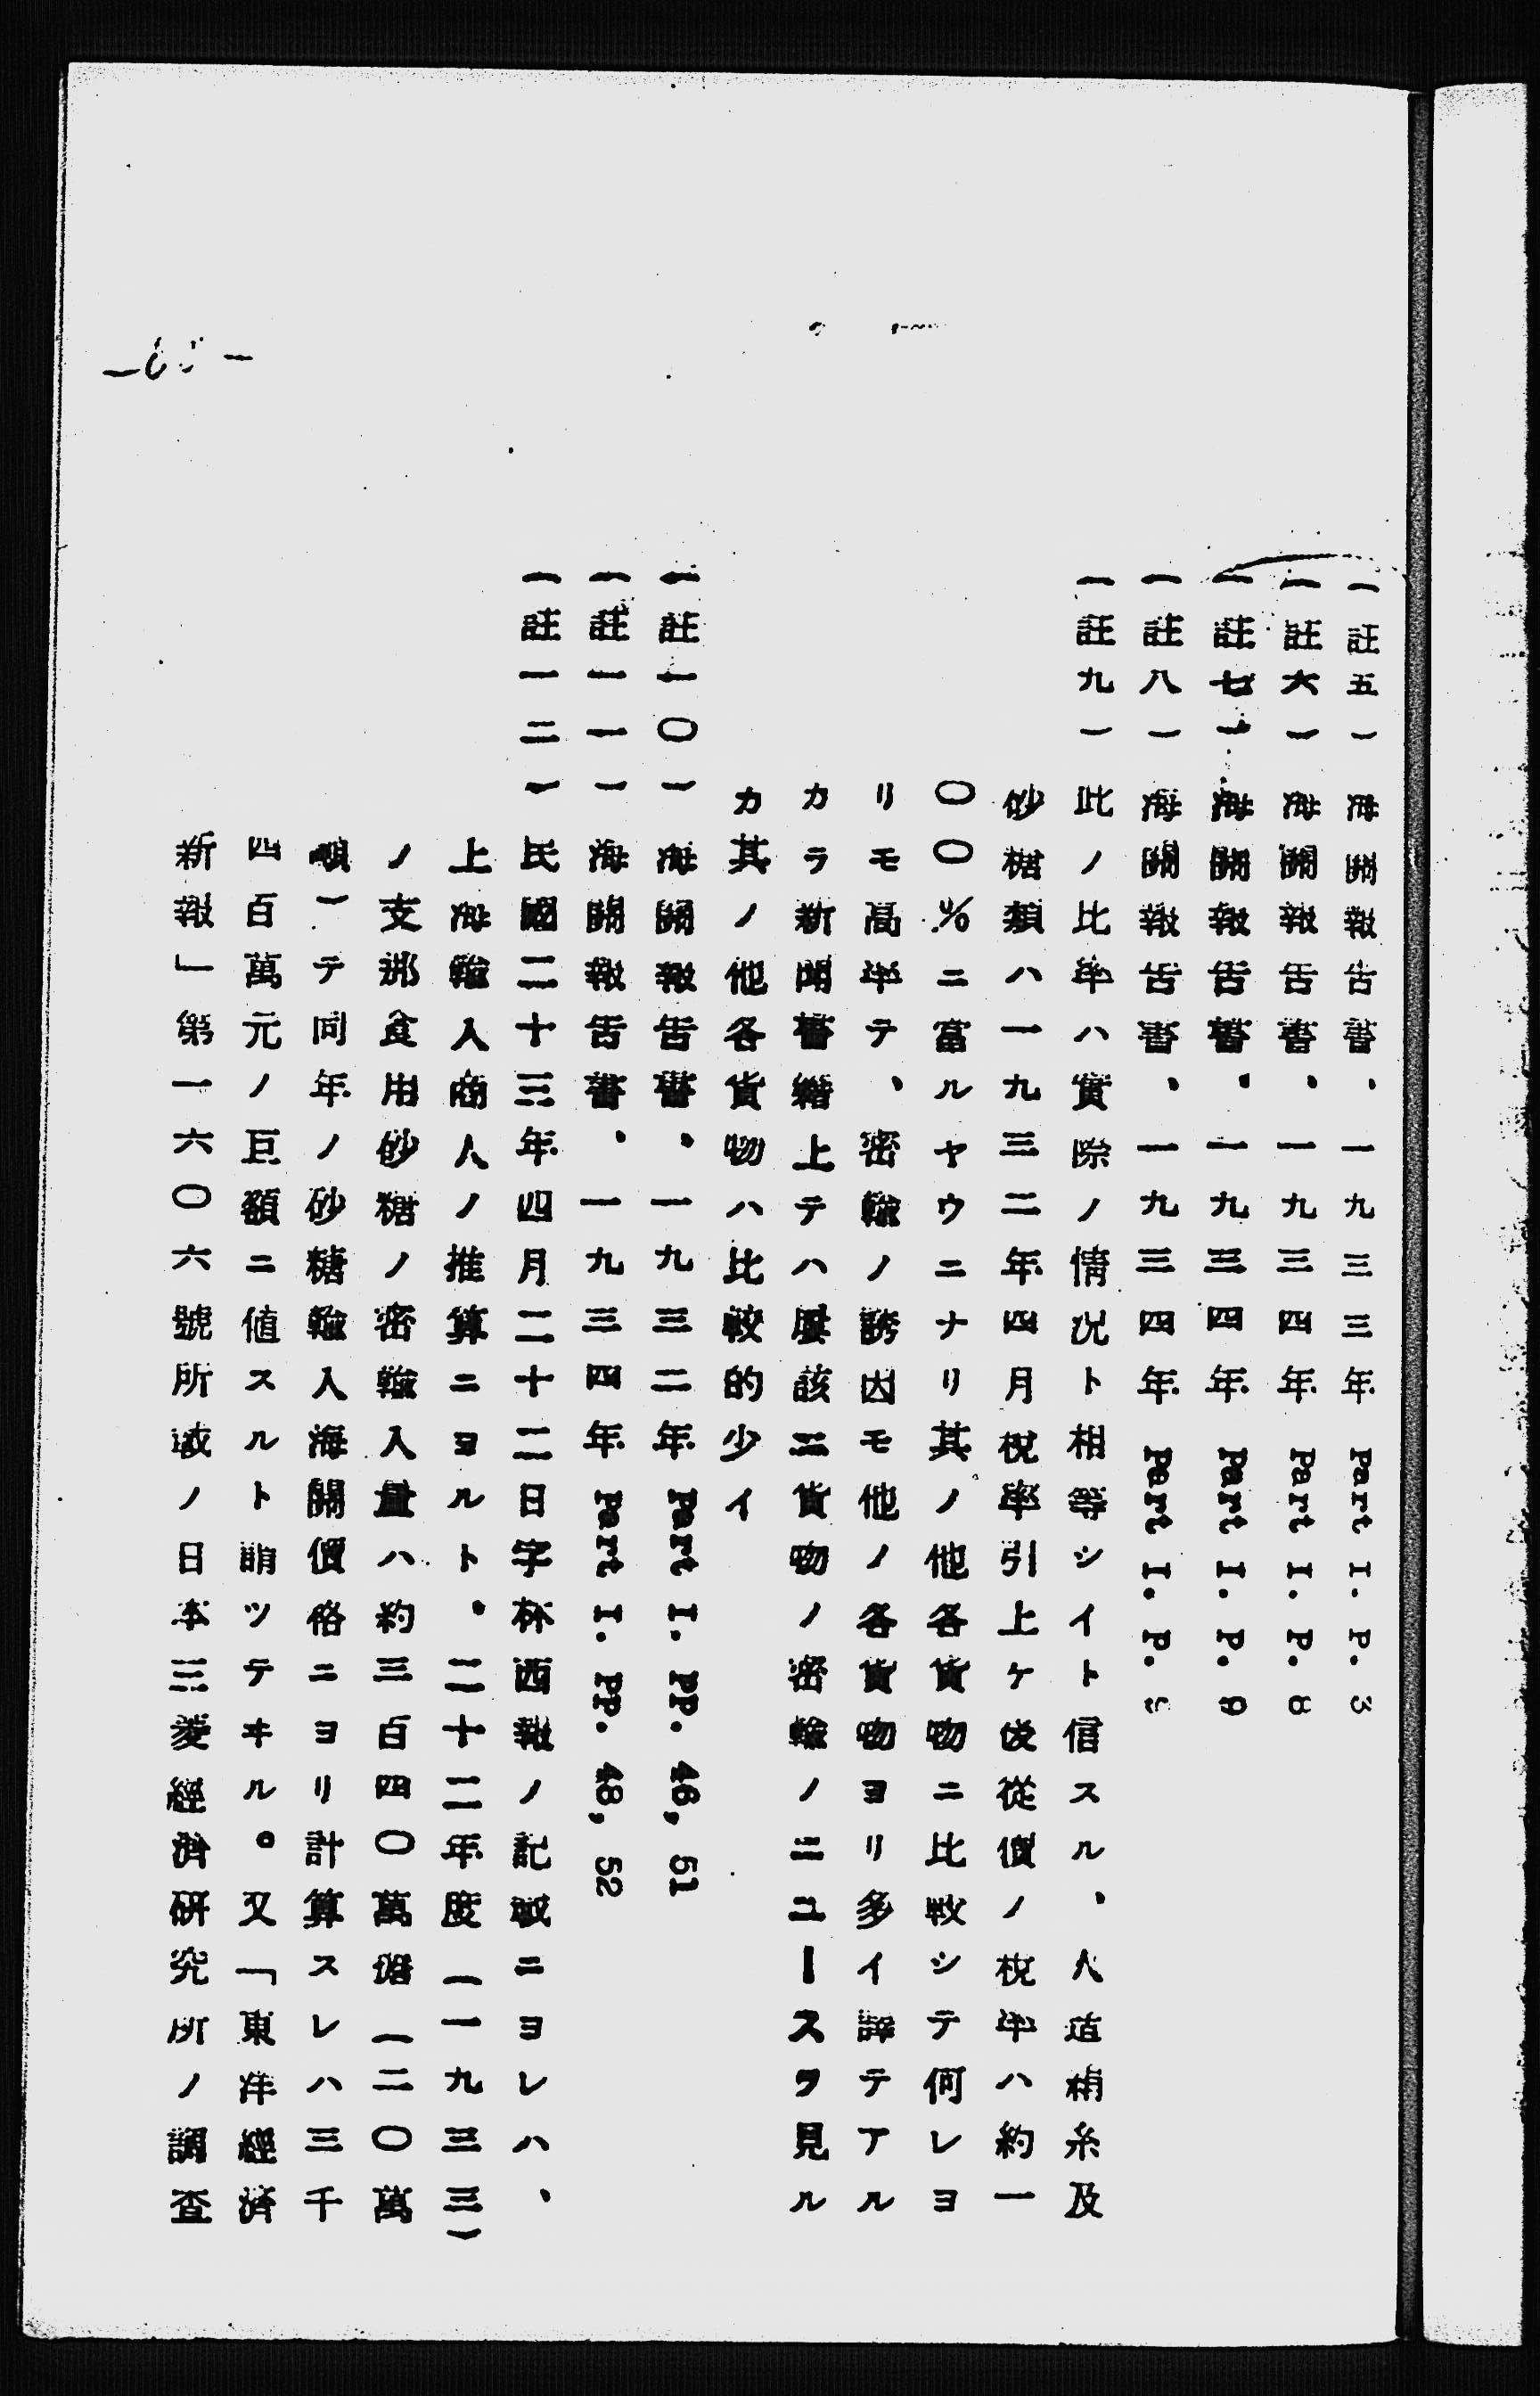 （註五）海關報告書、一九三三年 Part I. P. 3
（註六）海關報告書、一九三四年 Part I. P. 8
（註七）海關報告書、一九三四年 Part I. P. 9
（註八）海關報告書、一九三四年 Part I. P.
（註九）此ノ比率ハ實際ノ情況ト相等シイト信スル、人造絹糸及
砂糖類ハ一九三二年四月稅率引上ケ後從價ノ稅率ハ約一
〇〇％ニ當ルヤウニナリ其ノ他各貨物ニ比較シテ何レヨ
リモ高率テ、密輸ノ誘因モ他ノ各貨物ヨリ多イ譯テアル
カラ新聞書籍上テハ屢該二貨物ノ密輸ノニユースヲ見ル
カ其ノ他各貨物ハ比較的少イ
（註一〇）海關報告書、一九三二年 Part I. PP. 46, 51
（註一一）海關報告書、一九三四年 Part I. PP. 48, 52
（註一二）民國二十三年四月二十二日字林西報ノ記載ニヨレハ、
上海輸入商人ノ推算ニヨルト、二十二年度（一九三三）
ノ支那食用砂糖ノ密輸入量ハ約三百四〇萬擔（二〇萬
噸）テ同年ノ砂糖輸入海關價格ニヨリ計算スレハ三千
四百萬元ノ巨額ニ値スルト謂ツテヰル。又「東洋經濟
新報」第一六〇六號所載ノ日本三菱經濟研究所ノ調査